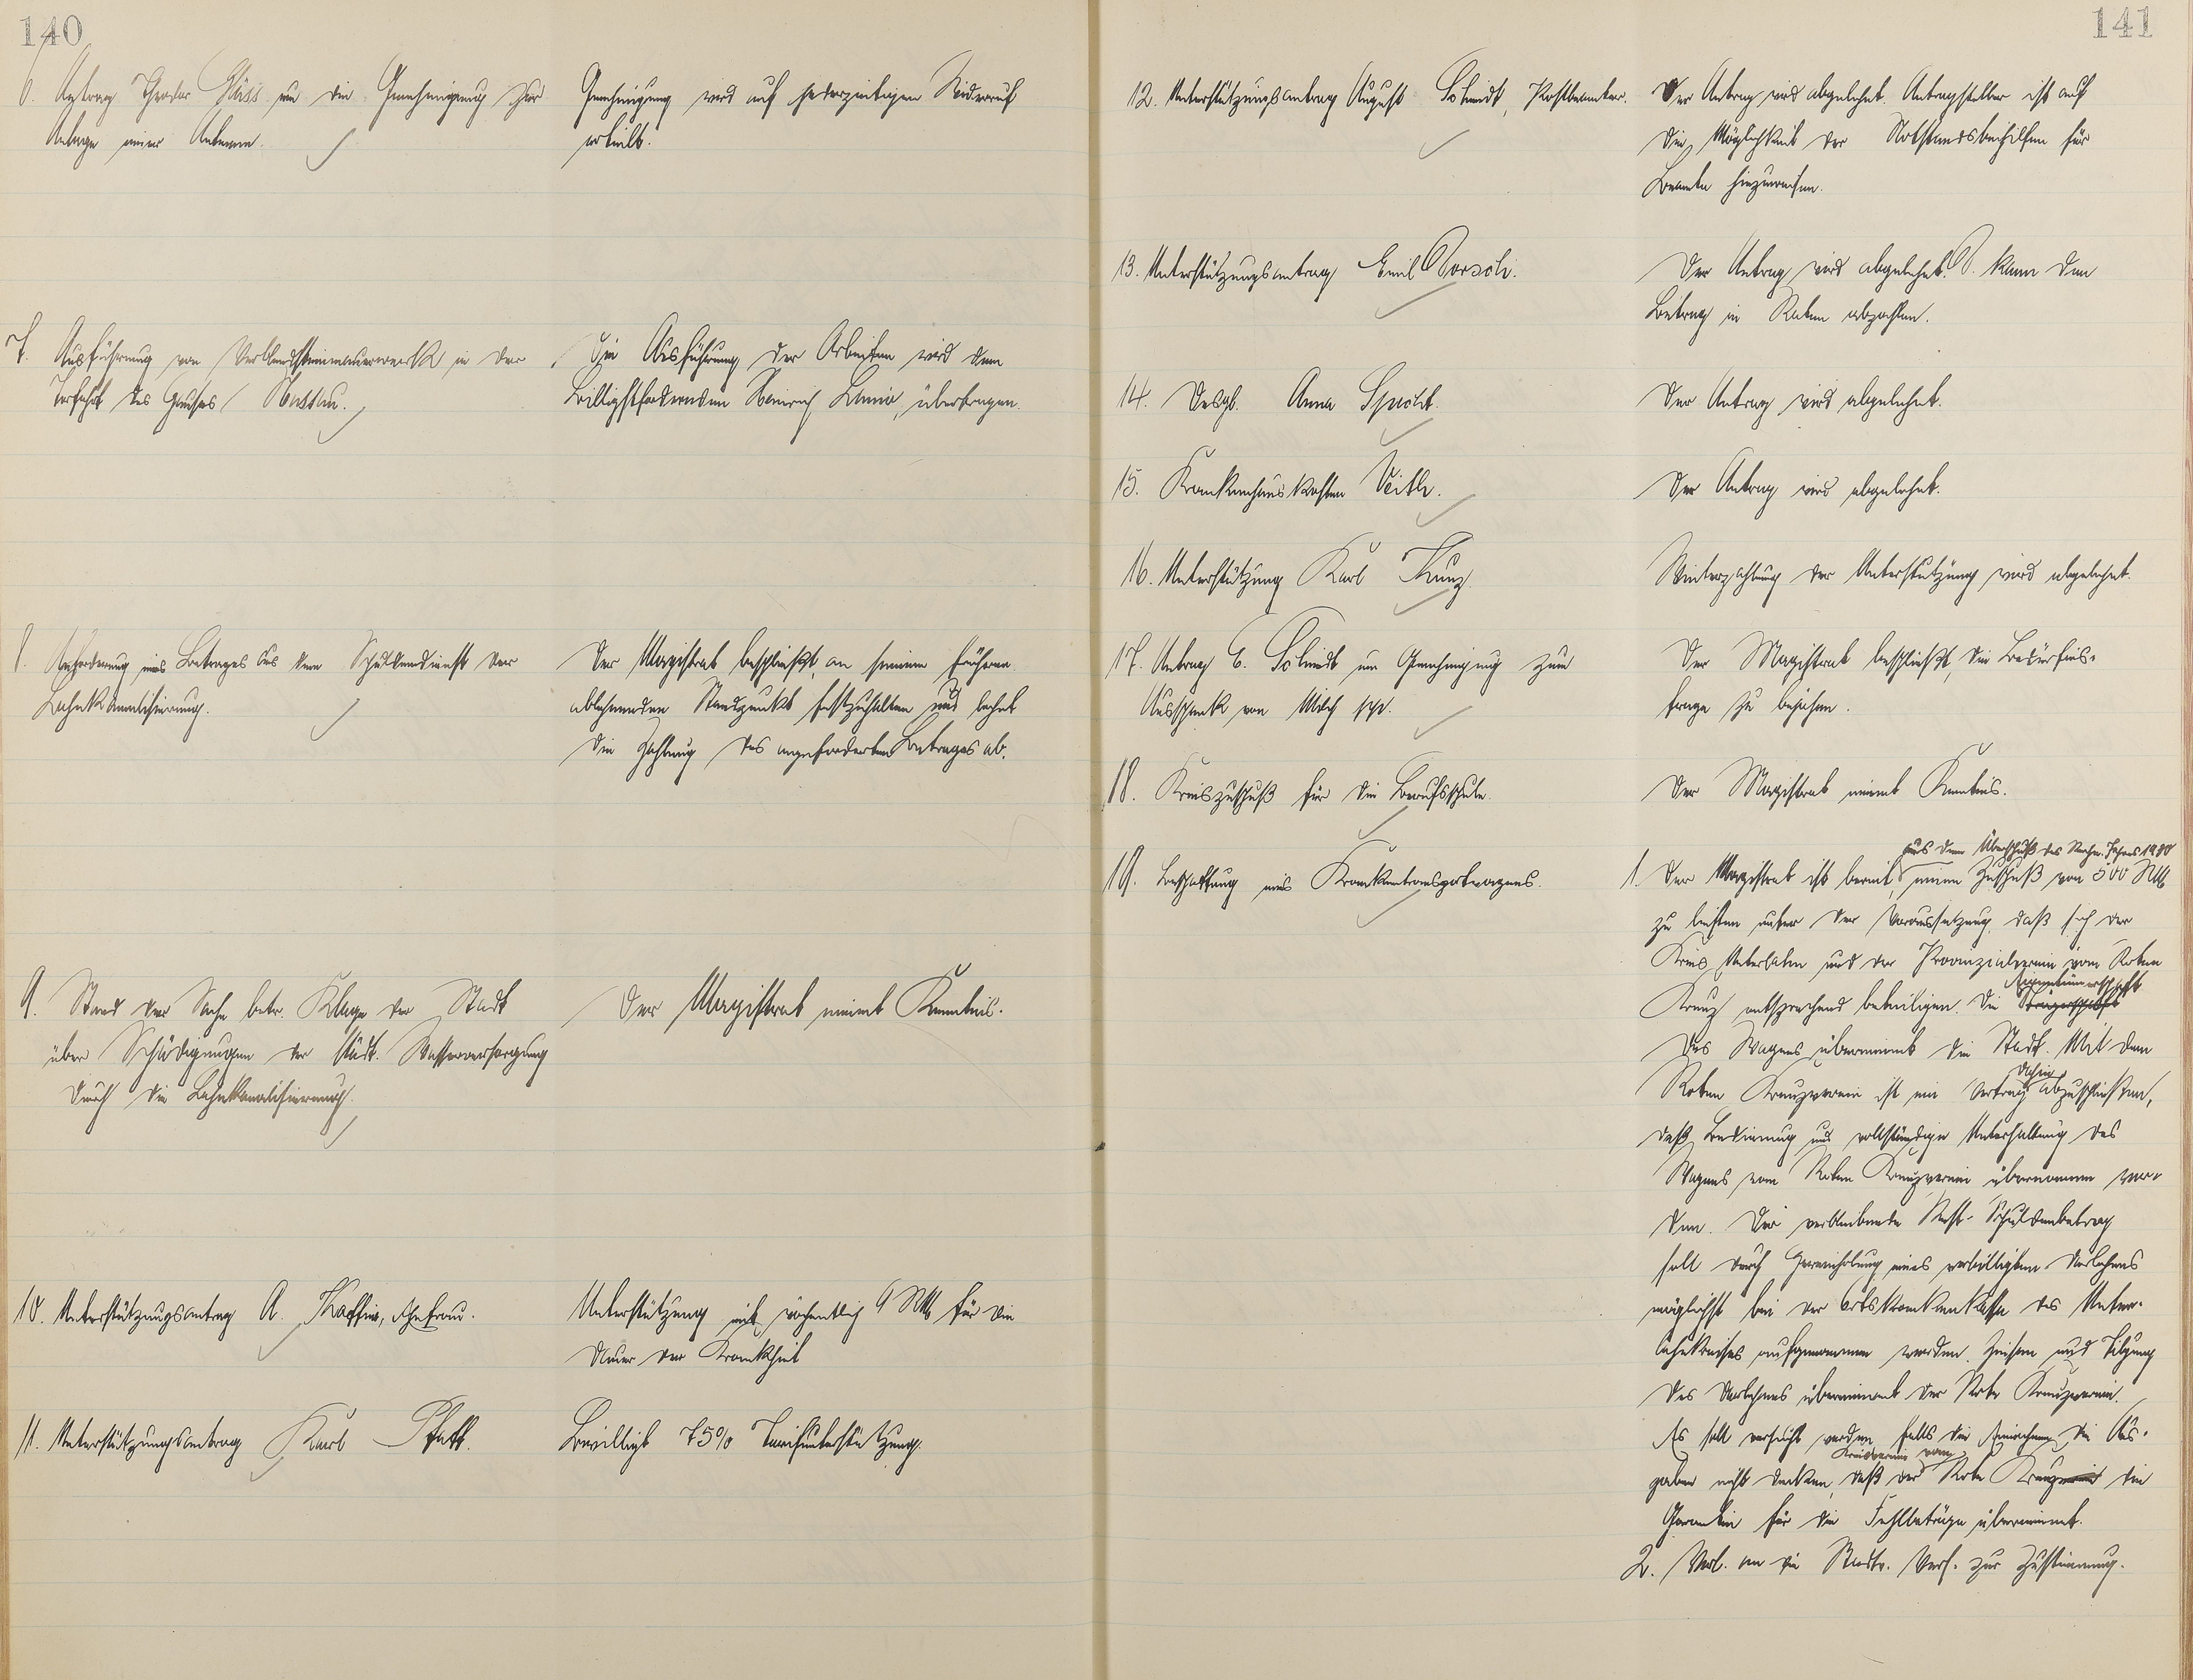 140
6. Antrag Theodor Gläss um die Genehmigung zur
Anlage einer Antenne.
Genehmigung wird auf jederzeitigen Widerruf
erteilt.
7. Ausführung von Verblendsteinmauerwerk in der
des Hauses Nassau.
Die Ausführung der Arbeiten wird dem
Billigstfordernden Heinrich übertragen.
8. Anforderung eines Betrages aus dem Schuldendienst der
Lahnkanalisierung.
Der Magistrat beschließt, an seinem früheren
ablehnenden Standpunkt festzuhalten und lehnt
die Zahlung des angeforderten Betrages ab.
9. Stand der Sache betr. Klage der Stadt
über Schädigungen der städt. Wasserversorgung
durch die Lahnkanalisierung.
Der Magistrat nimmt Kenntnis.
10. Unterstützungsantrag A. Ehefrau.
Unterstützung mit wöchentlich 9 RM für die
Dauer der Krankheit
11. Unterstützungsantrag Karl Pfaff.
Bewilligt 75% Tarifunterstützung.
141
12. Unterstützungsantrag August Schmidt, Postbeamter.
Der Antrag wird abgelehnt. Antragsteller ist auf
die Möglichkeit der Notstandsbeihilfen für
Beamte hinzuweisen.
13. Unterstützungsantrag Emil Dorsch.
Der Antrag wird abgelehnt. D. kann den
Betrag in Raten abzahlen.
14. Desgl. Anna Specht.
Der Antrag wird abgelehnt.
15. Krankenhauskosten Veith.
Der Antrag wird abgelehnt.
16. Unterstützung Karl Kunz.
Weiterzahlung der Unterstützung wird abgelehnt.
17. Antrag E. Schmidt um Genehmigung zum
Ausschank von Milch pp.
Der Magistrat beschließt, die Bedürfnis-
frage zu bejahen.
18. Kreiszuschuß für die Berufsschule.
Der Magistrat nimmt Kenntnis.
19. Beschaffung eines Krankentransportwagens.
aus dem Überschuß des Rechn. Jahres 1930
1. Der Magistrat ist bereit, einen Zuschuß von 500 RM
zu leisten unter der Voraussetzung, daß sich der
Kreis Unterlahn und der Provinzialverein vom Roten
Eigentümerschaft
Kreuz entsprechend beteiligen. Die Trägerschaft
des Wagens übernimmt die Stadt. Mit dem
dahin
Roten Kreuzverein ist ein Vertrag abzuschließen,
daß Bedienung und vollständige Unterhaltung des
Wagens vom Roten Kreuzverein übernommen wer-
den. Der verbleibende Rest-Schuldenbetrag
soll durch eines verbilligten Darlehens
möglichst bei der Ortskrankenkasse des Unter-
lahnkreises aufgenommen werden. Zinsen und Tilgung
des Darlehens übernimmt der Rote Kreuzverein.
Es soll versucht werden, falls die Einnahmen die Aus-
Kreisverein vom
gaben nicht decken, daß der Rote Kreuzverein die
Garantie für die Fehlbeträge übernimmt.
2. Vorl. an die Stadtv. Vers. zur Zustimmung.